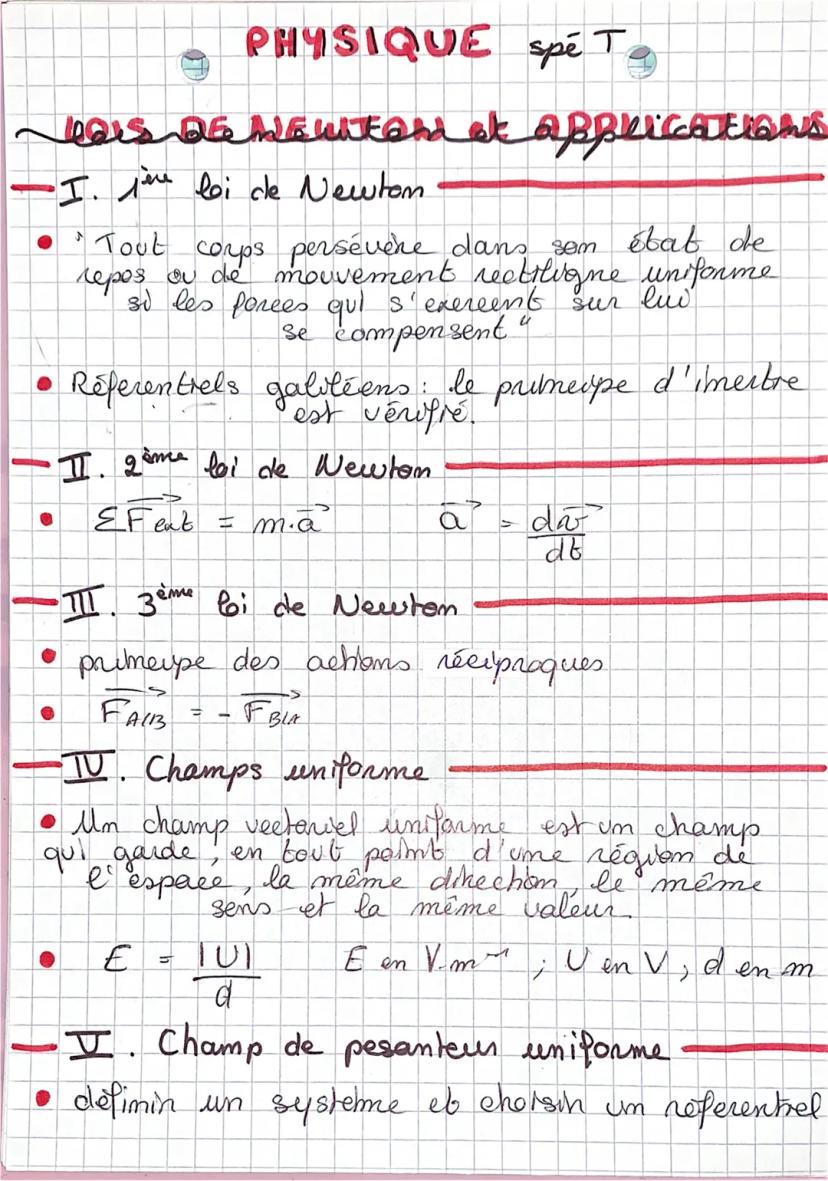 PHYSIQUE spé T
LOIS DE NEWTON et APPLICATIONS
I. 1ère loi de Newton
• "Tout corps persévère dans son état de
repos ou de mouvement rectiligne uniforme
si les forces qui s'exercent sur lui
se compensent"
• Réferentiels galiléens : le principe d'inertie
est vérifié.
II. 2ème loi de Newton
• ΣFext = m.a a = dv/dt
III. 3ème loi de Newton
• principe des actions réciproques
• FA/B = - FB/A
IV. Champs uniforme
• Un champ vectoriel uniforme est un champ
qui garde, en tout point d'une région de
l'espace, la même direction, le même
sens et la même valeur.
• E = |U|/d E en V.m⁻¹ ; U en V ; d en m
V. Champ de pesanteur uniforme
• définir un système et choisir un référentiel